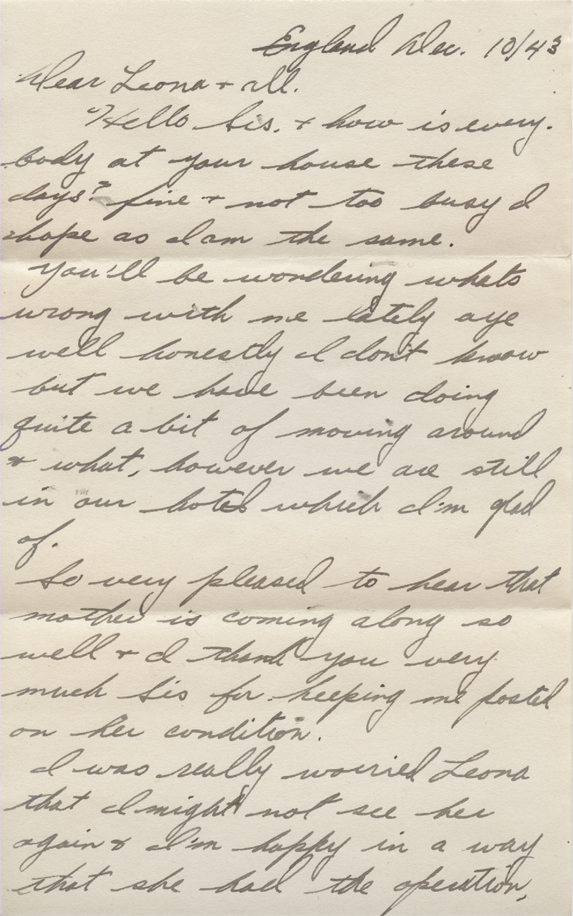 England Dec. 10/43
Dear Leona + all.
"Hello Sis. + how is every-
body at your house these
days? fine + not too busy I
hope as I am the same.
You'll be wondering whats
wrong with me lately aye
well honestly I don't know
but we have been doing
quite a bit of moving around
+ what, however we are still
in our hotel which I'm glad
of.
So very pleased to hear that
mother is coming along so
well + I thank you very
much Sis for keeping me posted
on her condition.
I was really worried Leona
that I might not see her
again & I'm happy in a way
that she had the operation,